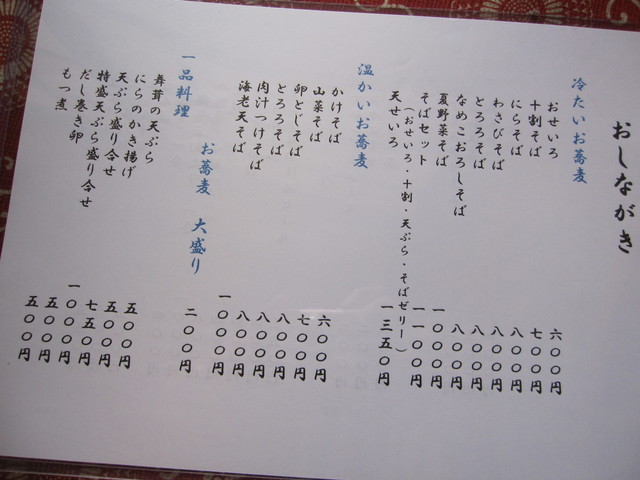 おしながき
冷たいお蕎麦
おせいろ 六〇〇円
十割そば 七〇〇円
にらそば 八〇〇円
わさびそば 八〇〇円
とろろそば 八〇〇円
なめこおろしそば 八〇〇円
夏野菜そば 一〇〇〇円
そばセット 一一〇〇円
（おせいろ・十割・天ぷら・そばゼリー）
天せいろ 一三五〇円
温かいお蕎麦
かけそば 六〇〇円
山菜そば 七〇〇円
卵とじそば 八〇〇円
とろろそば 八〇〇円
肉汁つけそば 八〇〇円
海老天そば 一〇〇〇円
お蕎麦 大盛り 二〇〇円
一品料理
舞茸の天ぷら 五〇〇円
にらのかき揚げ 五〇〇円
天ぷら盛り合せ 七五〇円
特盛天ぷら盛り合せ 一〇〇〇円
だし巻き卵 五〇〇円
もつ煮 五〇〇円